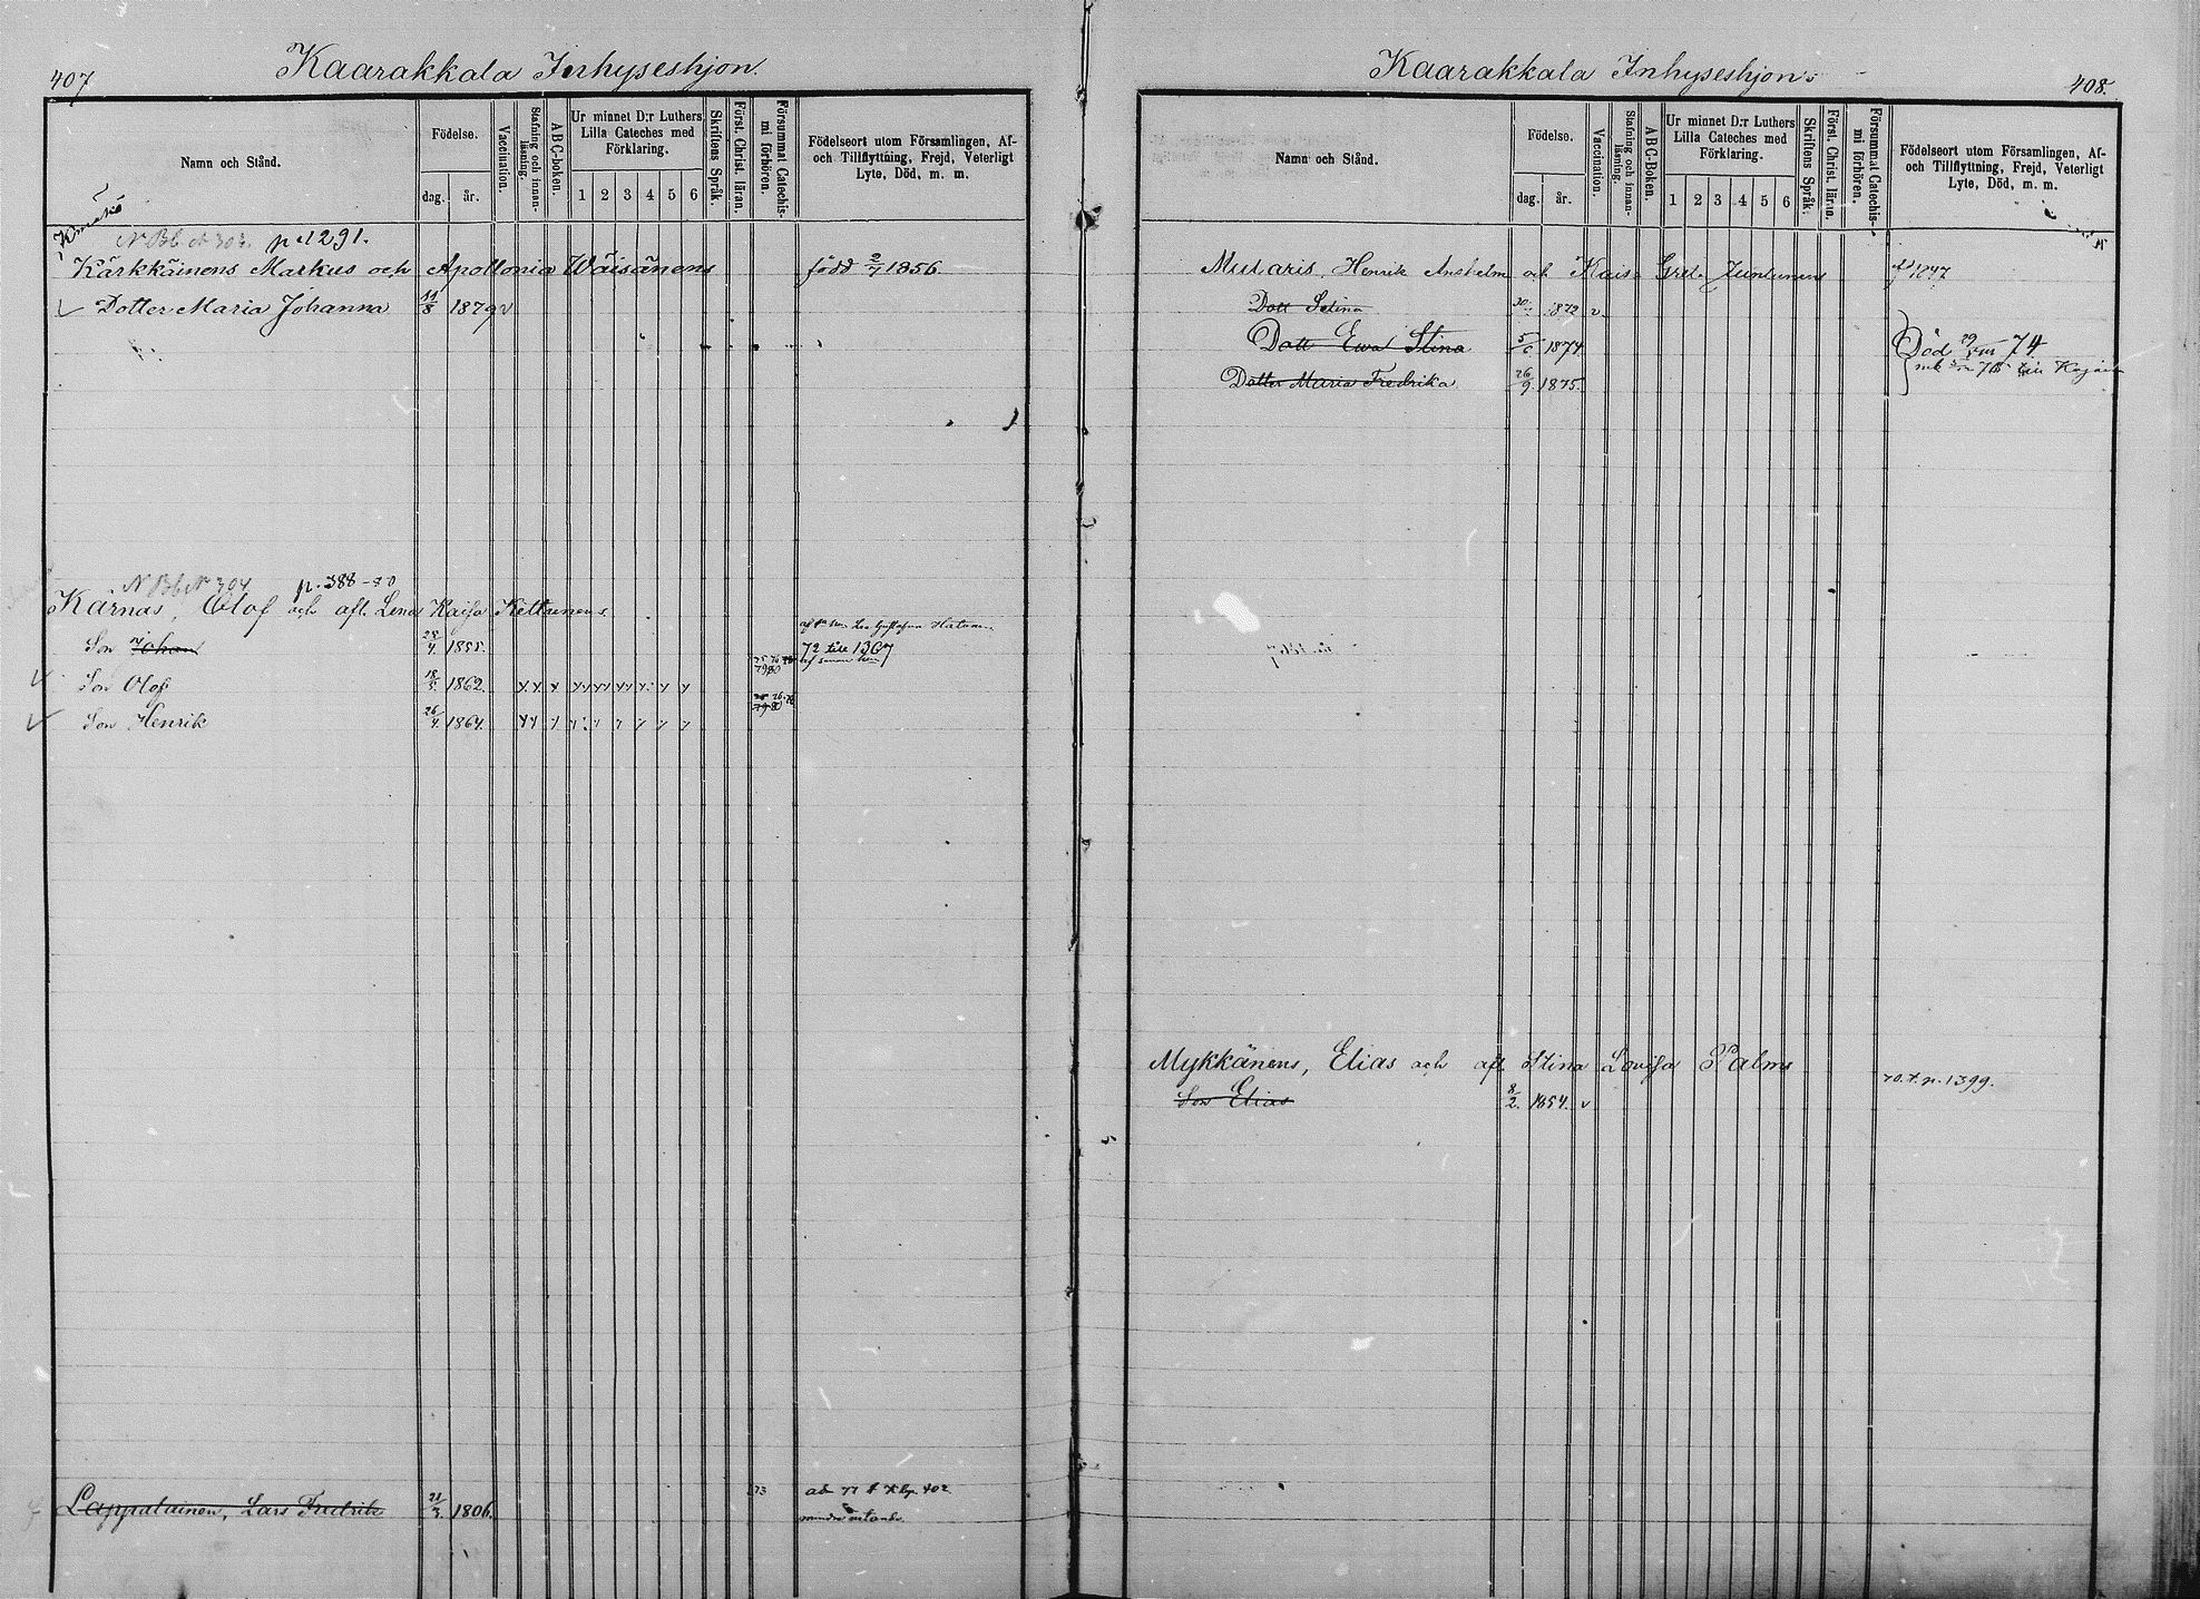 407
Kaarakkala Inhyseshjon.
Namn och Stånd.
Födelse.
dag.
år.
Vaccination.
Stafning och innanläsning.
ABC-boken.
Ur minnet D:r Luthers Lilla Cateches med Förklaring.
1 2 3 4 5 6
Skriftens Språk.
Först. Christ. läran.
Försummat Catechismi förhören.
Födelseort utom Församlingen, Af- och Tillflyttning, Frejd, Veterligt Lyte, Död, m. m.
N Bb N 303. p. 1291.
Kärkkäinens Markus och Apollonia Wäisänens född 2/7 1856.
Dotter Maria Johanna 11/8 1879 v
N Bb N 304 p. 388-80
Kärnäs, Olof och afl. Lena Kaisa Kettunens.
Son Johan 28/4. 1855. 72 till 1367
Son Olof 18/5. 1862.
Son Henrik 26/4. 1864.
Lappalainen, Lars Fredrik 21/3. 1806. 73
408.
Kaarakkala Inhyseshjon:
Namn och Stånd.
Födelse.
dag.
år.
Vaccination.
Stafning och innanläsning.
ABC-Boken.
Ur minnet D:r Luthers Lilla Cateches med Förklaring.
1 2 3 4 5 6
Skriftens Språk.
Först. Christ. läran.
Försummat Catechismi förhören.
Födelseort utom Församlingen, Af- och Tillflyttning, Frejd, Veterligt Lyte, Död, m. m.
Mularis, Henrik Anshelm och Kaisa Greta Juntunens f 1847
Dott Selina 1872 v.
Dott Ewa Stina 5/6 1874 Död 29/VIII 74
Dotter Maria Fredrika 26/9. 1875. till Kajana
Mykkänens, Elias och afl. Stina Lovisa Palms
Son Elias 8/2. 1854. v 70. t. p. 1399.